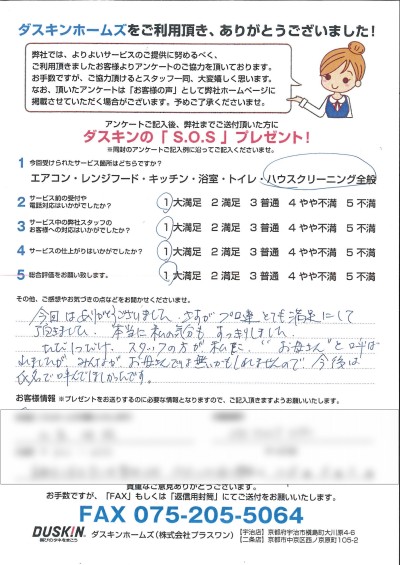 ダスキンホームズをご利用頂き、ありがとうございました!
弊社では、よりよいサービスのご提供に努めるべく、
ご利用頂きましたお客様よりアンケートのご協力を頂いております。
お手数ですが、ご協力頂けるとスタッフ一同、大変嬉しく思います。
なお、頂いたアンケートは「お客様の声」として弊社ホームページに
掲載させていただく場合がございます。予めご了承くださいませ。
アンケートご記入後、弊社までご送付頂いた方に
ダスキンの「S.O.S」プレゼント!
※同封のアンケートご記入例に沿ってご記入くださいませ。
1 今回受けられたサービス箇所はどちらですか?
エアコン・レンジフード・キッチン・浴室・トイレ・ハウスクリーニング全般
2 サービス前の受付や電話対応はいかがでしたか? 1 大満足 2 満足 3 普通 4 やや不満 5 不満
3 サービス中の弊社スタッフのお客様への対応はいかがでしたか? 1 大満足 2 満足 3 普通 4 やや不満 5 不満
4 サービスの仕上がりはいかがでしたか? 1 大満足 2 満足 3 普通 4 やや不満 5 不満
5 総合評価をお願い致します。 1 大満足 2 満足 3 普通 4 やや不満 5 不満
その他、ご感想やお気づきの点などをお聞かせくださいませ。
今回はありがとうございました。さすがプロ達とても満足にして
頂きました。本当に私の気分もすっきりしました。
ひとつだけ、スタッフの方が私を、"お母さん"と呼ば
れましたが、みんなが、お母さんでは無いかもしれませんので、今後は
氏名で呼んでほしかったです。
お客様情報 ※プレゼントをお送りするのに必要な情報となりますので、ご記入頂きますようお願いいたします。
貴重なご意見ありがとうございます。
お手数ですが、「FAX」もしくは「返信用封筒」にてご送付をお願いいたします。
FAX 075-205-5064
DUSKIN 喜びのタネをまこう
ダスキンホームズ(株式会社プラスワン)
【宇治店】京都府宇治市槇島町大川原4-6
【二条店】京都市中京区西ノ京原町105-2